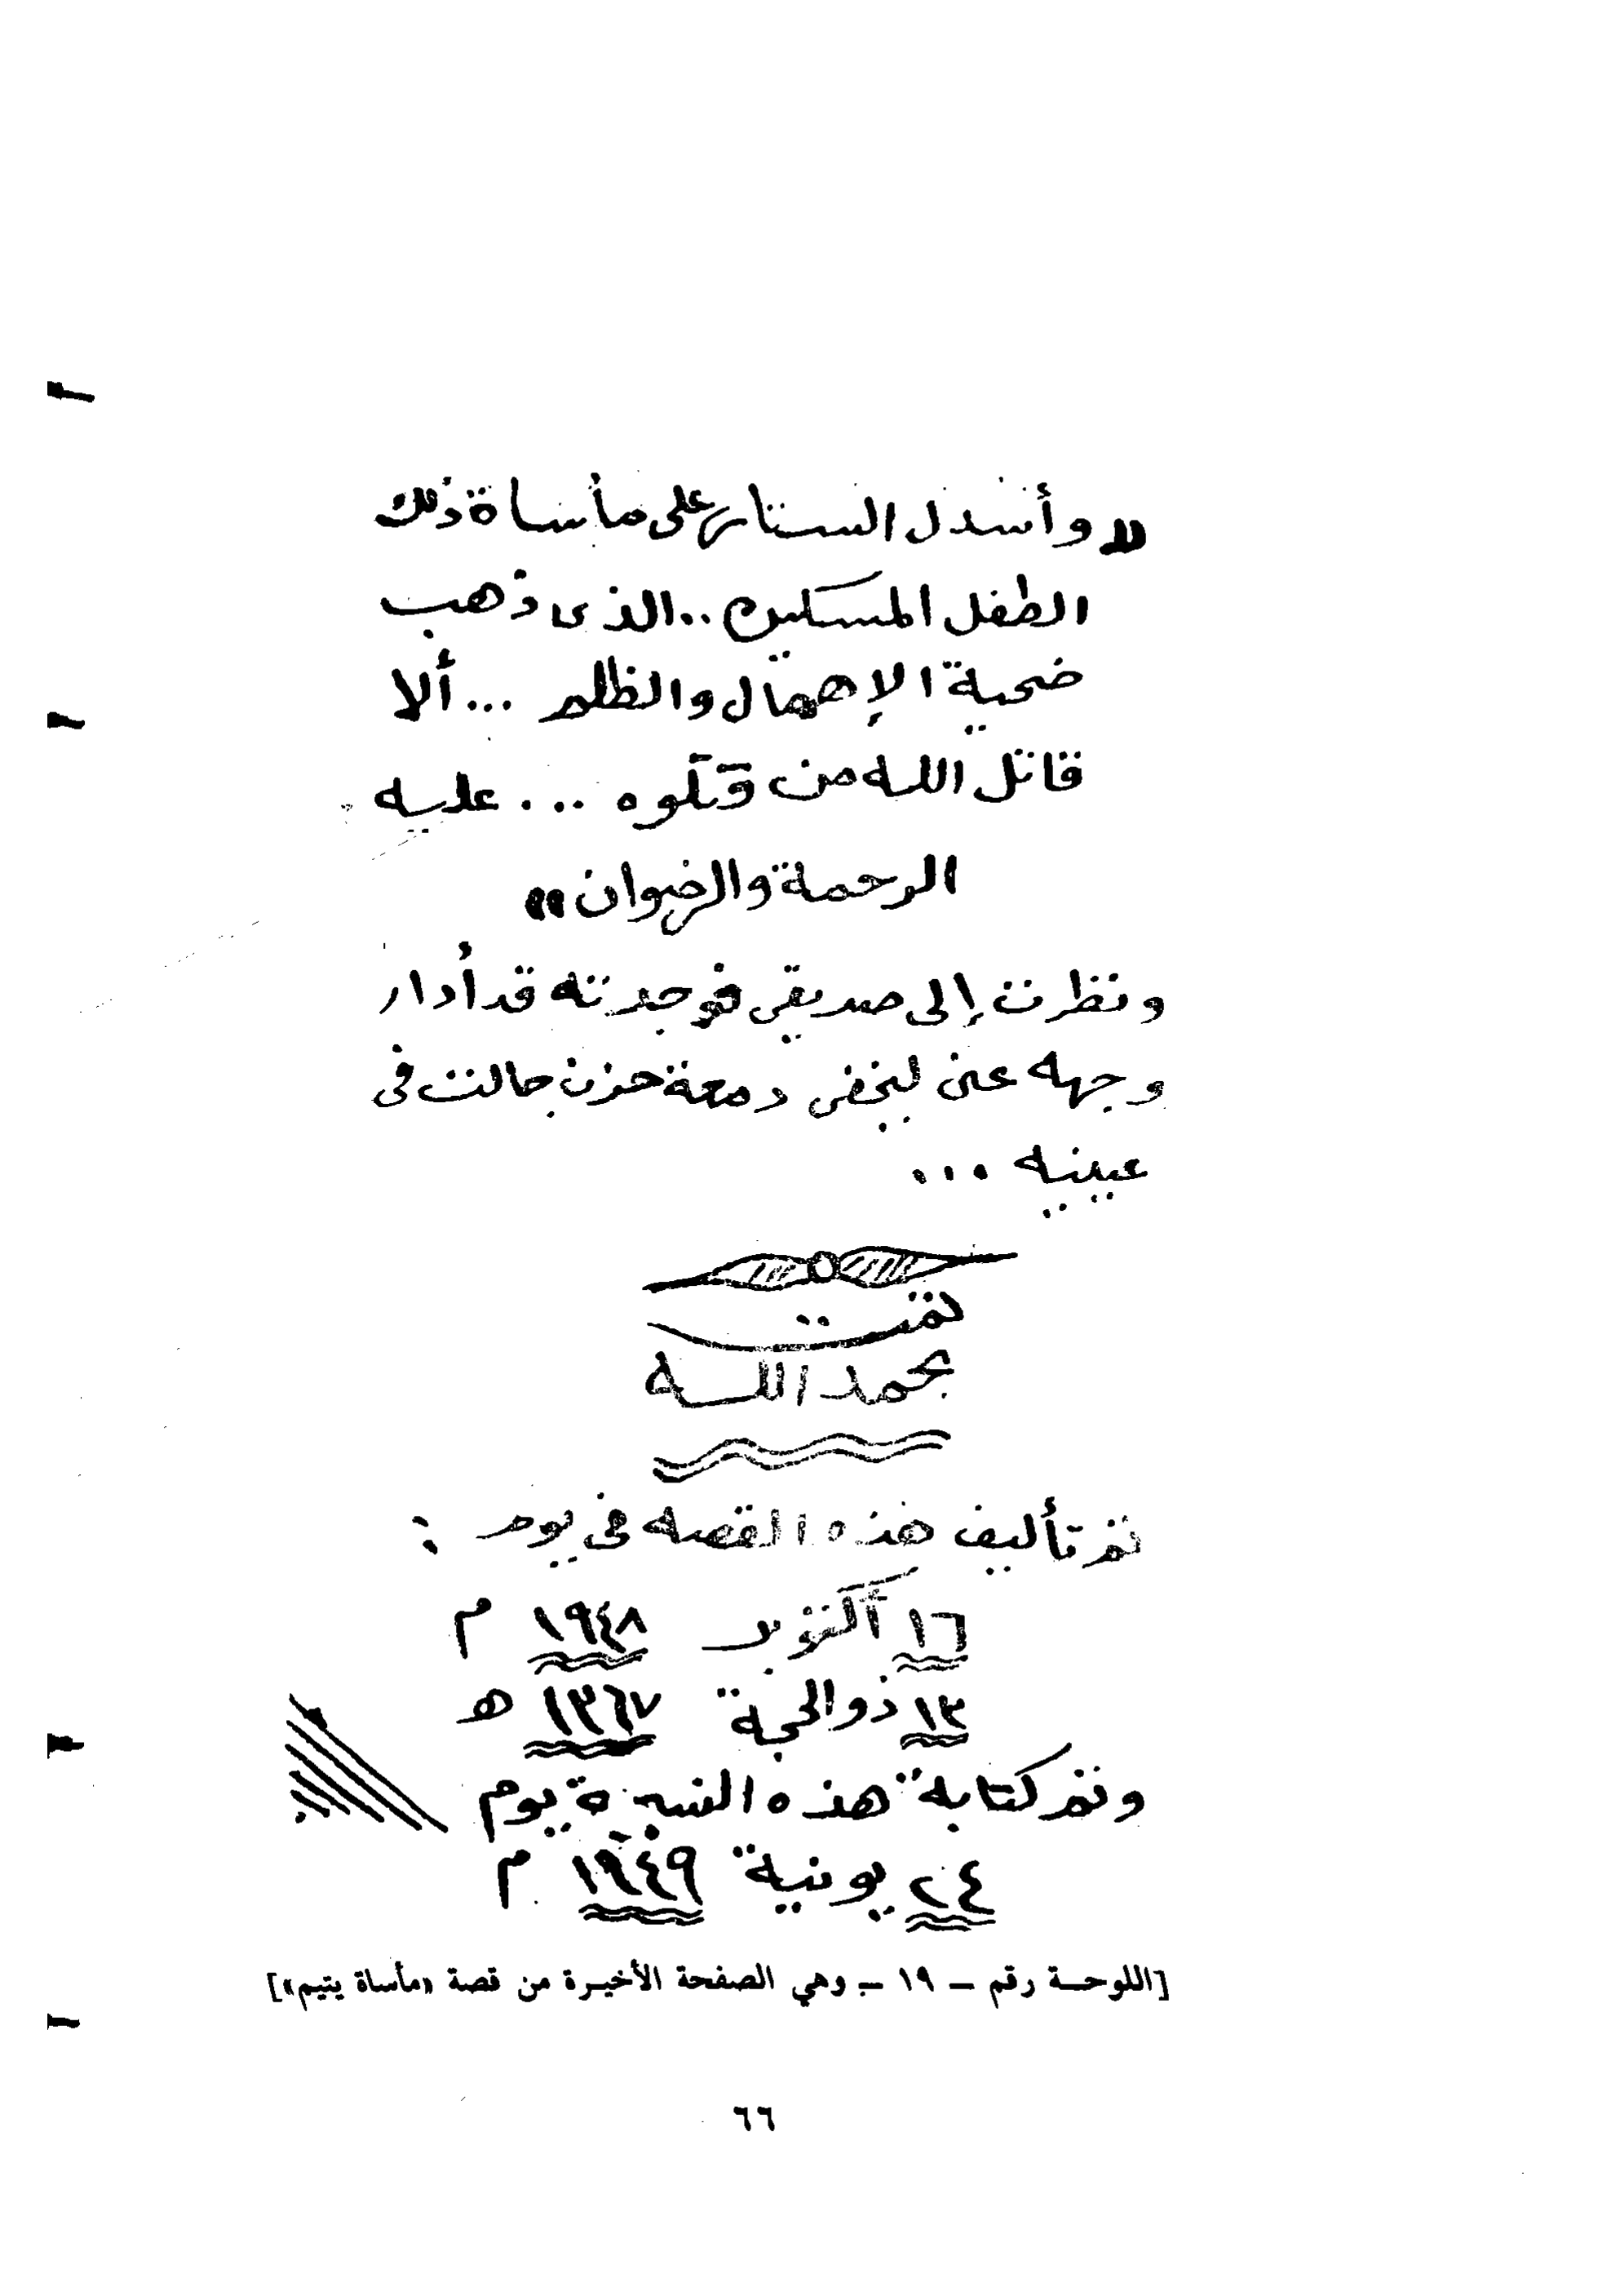 «وأسدل الستار على مأساة ذلك
الطفل المسكين .. الذى ذهب
ضحية الإهمال والظلم ... ألا
قاتل الله من قتلوه ... . عليه
الرحمة والرضوان»
ونظرت إلى صديقى فوجدته قد أدار
وجهه عنى ليخفى دمعة حزن جالت فى
عينيه ...
تمت
بحمد الله
تم تأليف هذه القصه فى يوم :
١٦ أكتوبر ١٩٤٨ م
١٣ ذو الحجة ١٣٦٧ هـ
وتم كتابة هذه النبذة يوم
٢٤ يونية ١٩٤٩ م
[اللوحـة رقم – ١٩ – وهي الصفحة الأخيرة من قصة «مأساة يتيم»]
٦٦